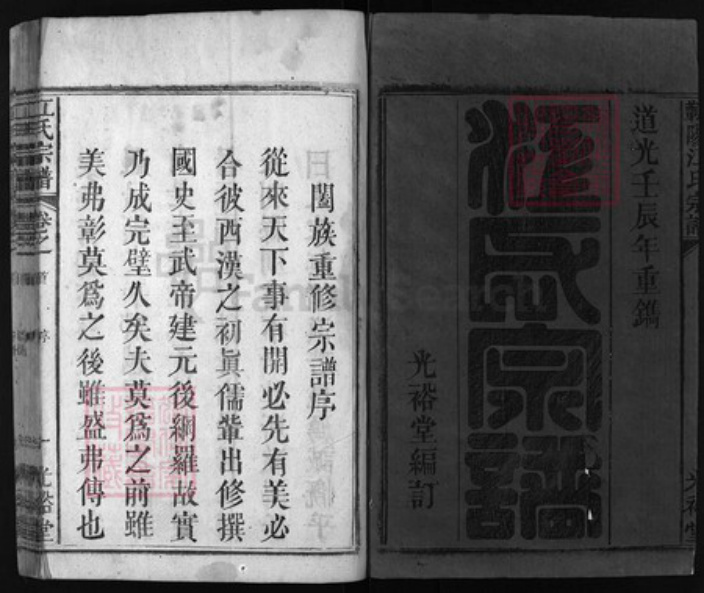 道光壬辰年重鐫
江氏宗譜
光裕堂編訂
闔族重修宗譜序
從來天下事有開必先有美必
合彼西漢之初眞儒輩出修撰
國史至武帝建元後網羅故實
乃成完壁久矣夫莫爲之前雖
美弗彰莫爲之後雖盛弗傳也
江氏宗譜
卷之
首
序
一
光裕堂